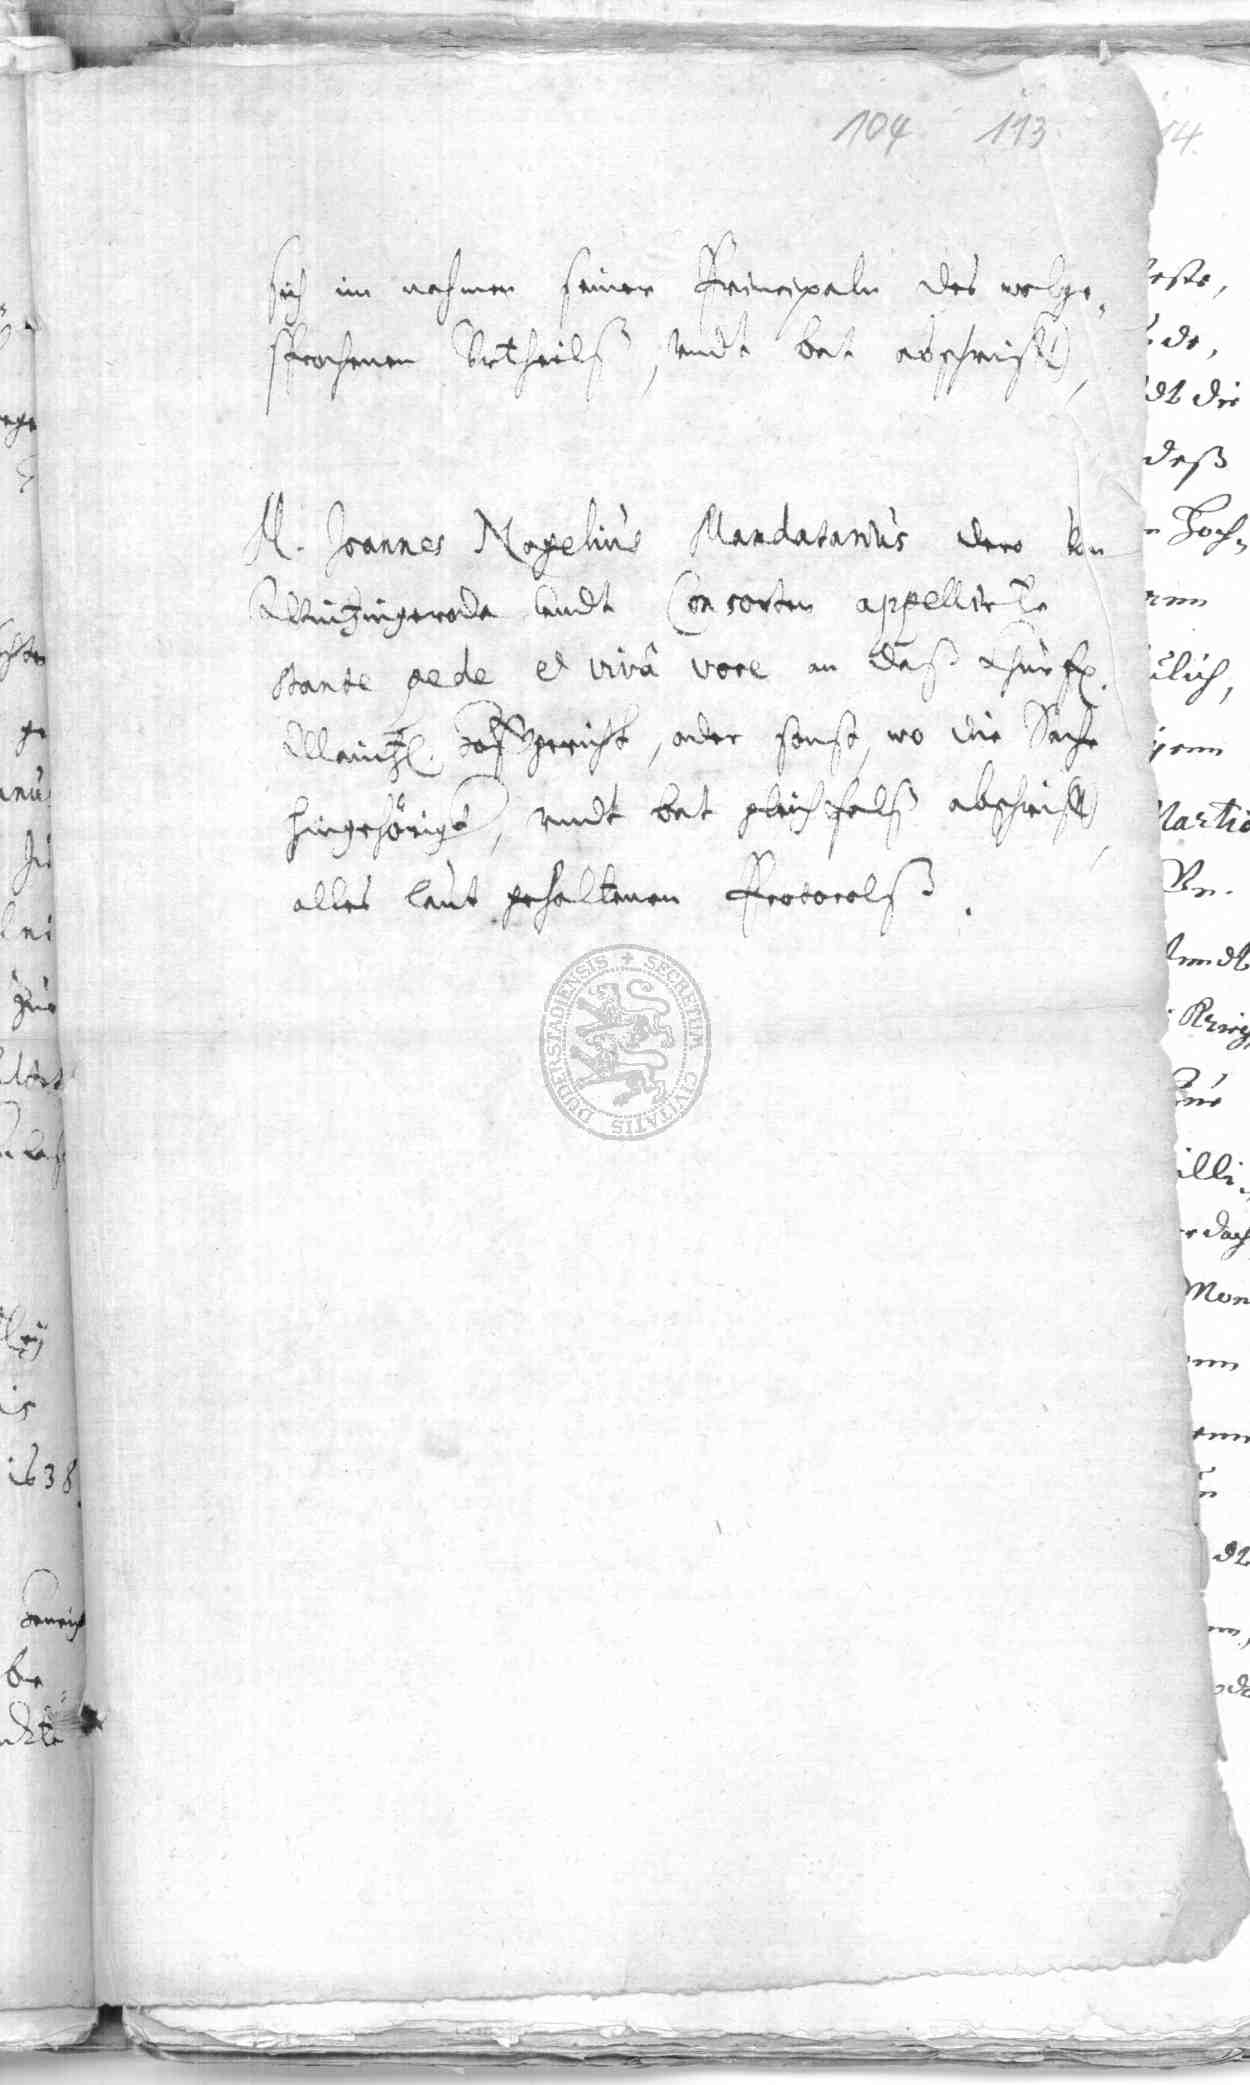 104 113
sich im nahmen seiner Principaln des wolge-
sprochenen Vrtheilß, vndt bat abschrifft,
M. Joannes Nogelius Mandatarius dero von
Wintzingeroda vndt Consorten appellirte
stante pede et vivâ voce an daß Churf.
Maintzl. Hoffgericht, oder sonst, wo die Sache
hingehörigk, vndt bat gleichfalß abschrifft,
alles laut gehaltenen Protocolß.
SECRETUM CIVITATIS DUDERSTADIENSIS